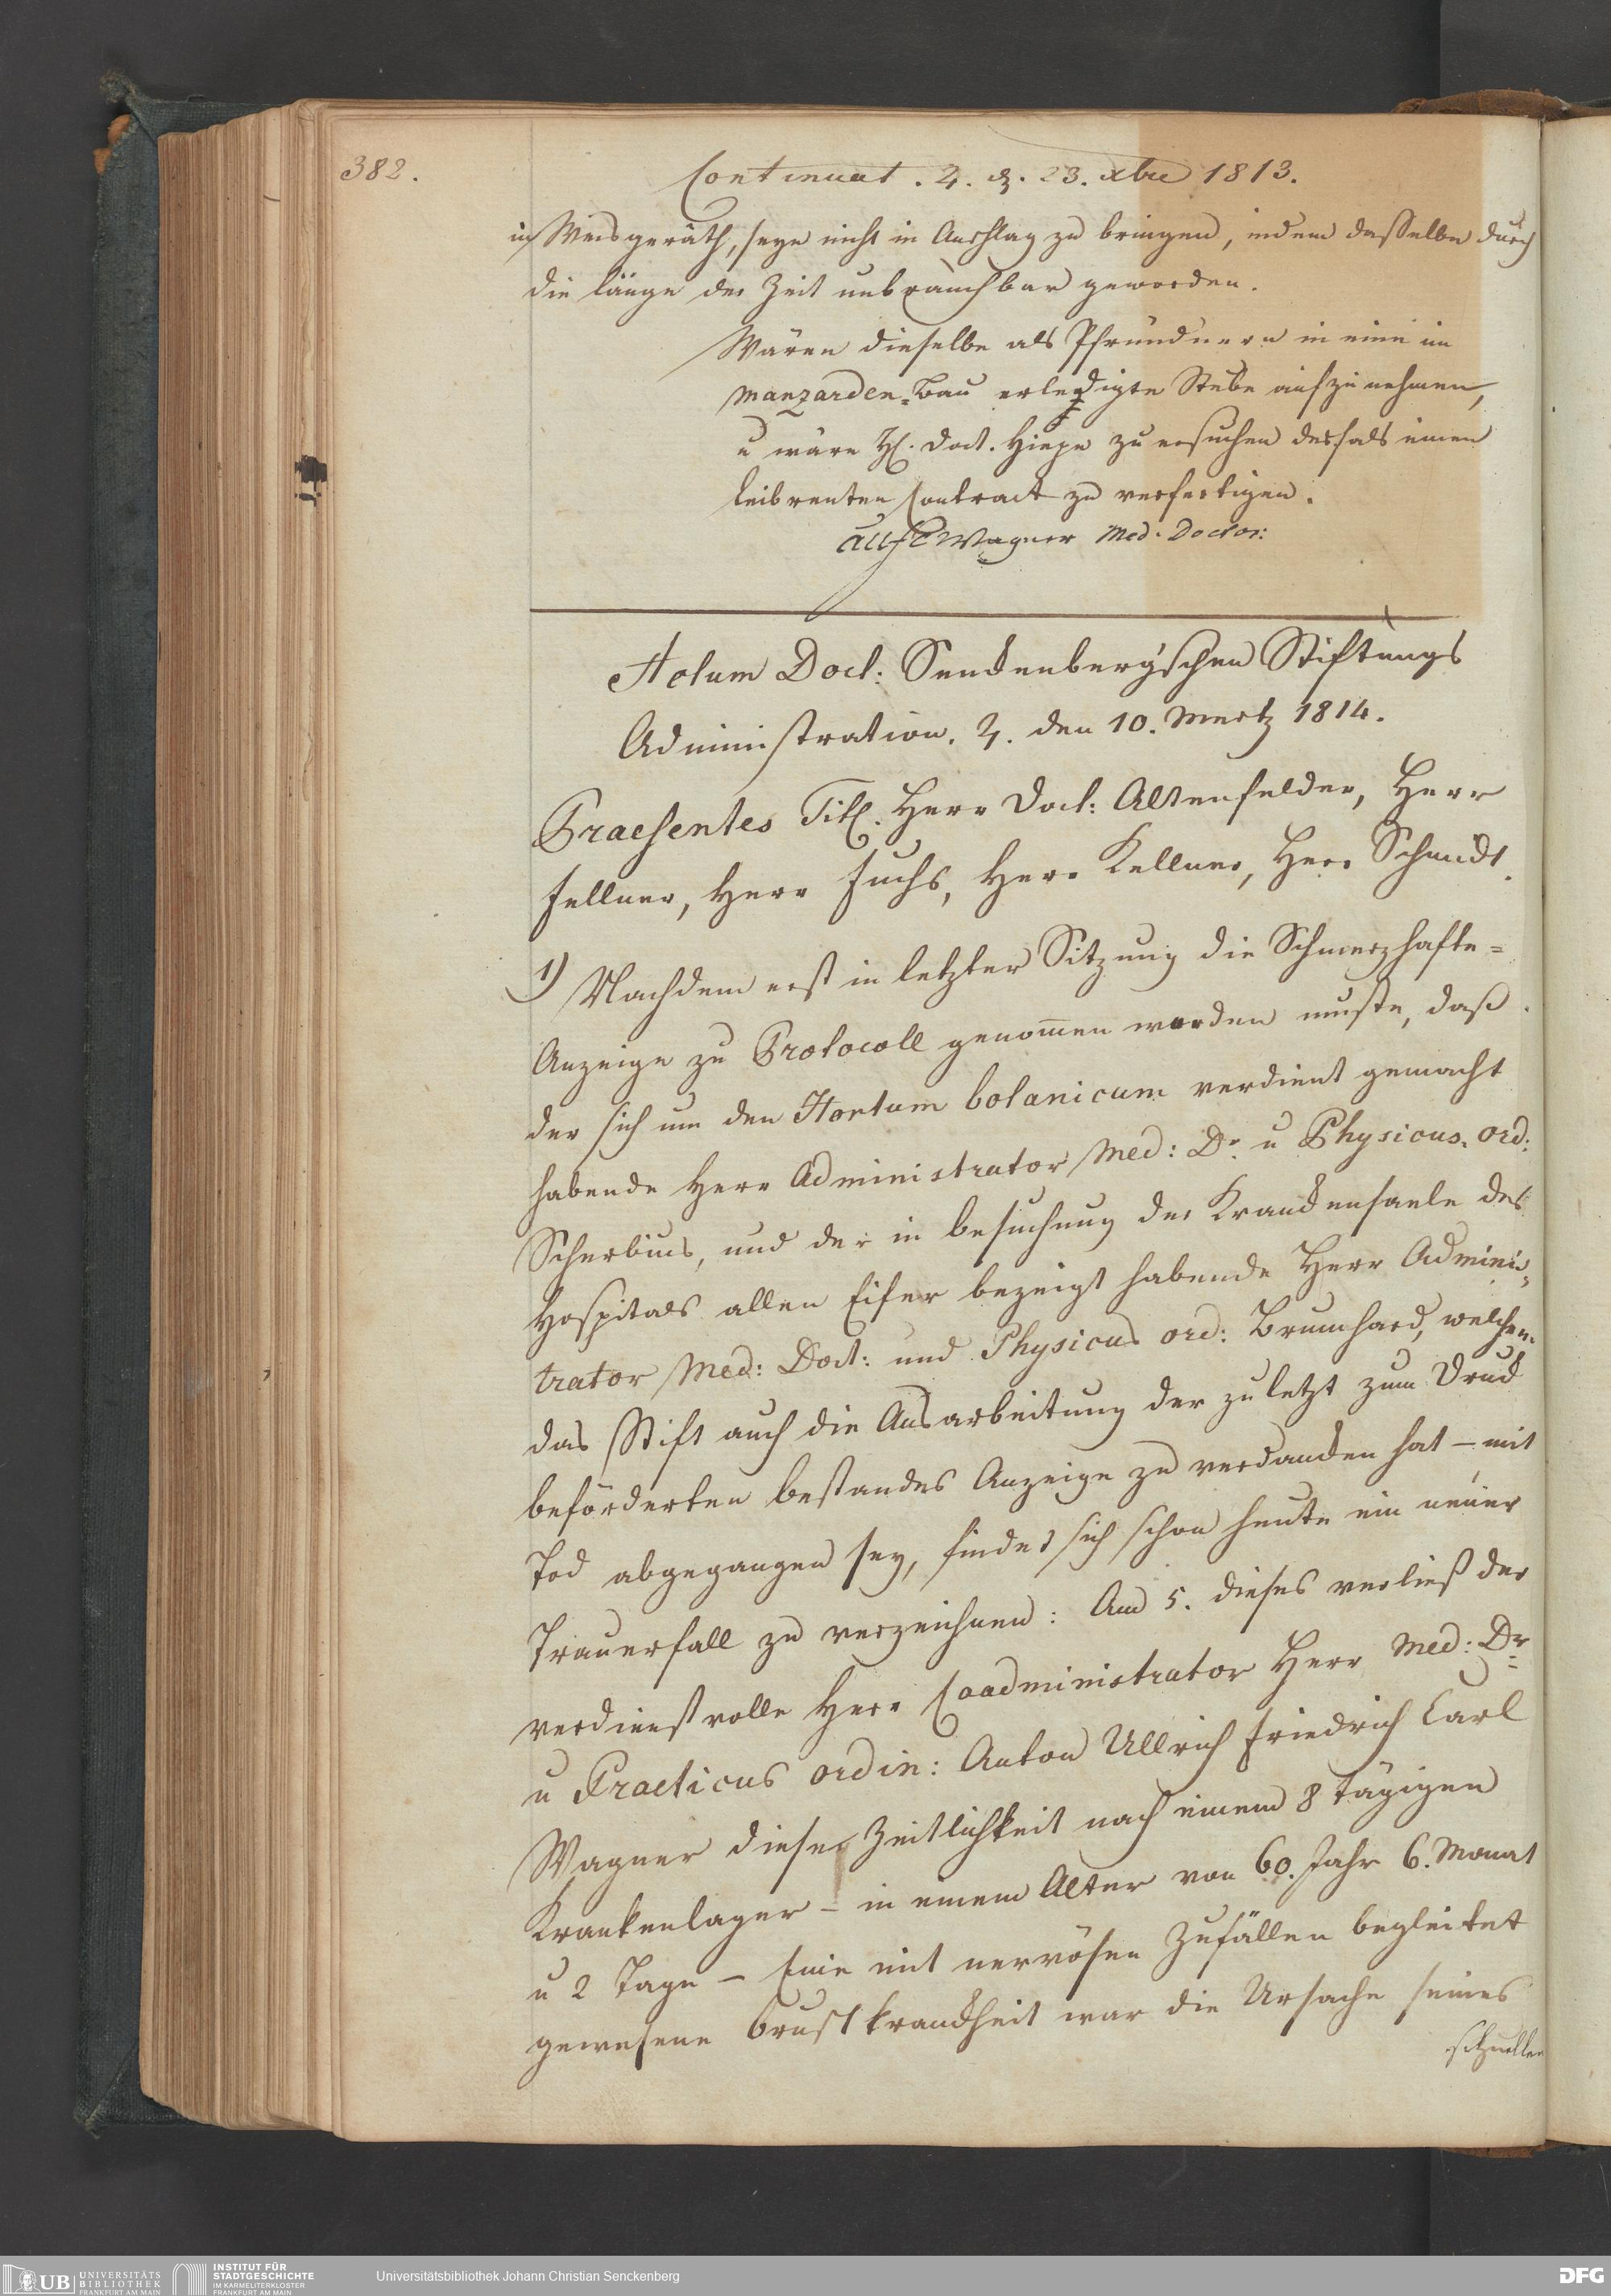 382.
Continuat. 4. d. 23. xbre 1813.
in Weisgeräth, seye nicht in Anschlag zu bringen, indem dasselbe durch
die länge der Zeit unbrauchbar geworden.
Wären dieselbe als Pfründnern in eine im
Manzarden=Bau erledigte Stube aufzunehmen,
u wäre H. Doct. Hiepe zu ersuchen desfals einen
Leibrenten Contract zu verfertigen.
AUFC Wagner Med. Doctor:
Actum Doct: Senckenbergischen Stiftungs
Administration. 4. den 10. Mertz 1814.
Praesentes Titl. Herr Doct: Altenfelder, Herr
Fellner, Herr Fuchs, Herr Kellner, Herr Schmidt.
1) Nachdem erst in letzter Sitzung die Schmerzhafte=
Anzeige zu Protocoll genommen werden muste, daß
der sich um den Hortum botanicum verdient gemacht
habende Herr Administrator Med: Dr. u Physicus. ord:
Scherbius, und der in Besuchung der Krankensaele des
Hospitals allen Eifer bezeigt habende Herr Adminis=
trator Med: Doct: und Physicus ord: Brumhard, welchen
das Stift auch die Ausarbeitung der zuletzt zum Druck
beförderten Bestandes Anzeige zu verdancken hat – mit
Tod abgegangen sey, findet sich schon heute ein neuer
Trauerfall zu verzeichnen: Am 5. dieses verließ der
verdienstvolle Herr Coadministrator Herr Med: Dr.
u Practicus ordin: Anton Ullrich Friedrich Carl
Wagner diese Zeitlichkeit nach einem 8 tägigen
Krankenlager – in einem Alter von 60. Jahr 6. Monat
u 2 Tage – Eine mit nervösen Zufällen begleitet
gewesene Brustkranckheit war die Ursache seines
schnellen
UB UNIVERSITÄTS
BIBLIOTHEK
FRANKFURT AM MAIN
INSTITUT FÜR
STADTGESCHICHTE
IM KARMELITERKLOSTER
FRANKFURT AM MAIN
Universitätsbibliothek Johann Christian Senckenberg
DFG